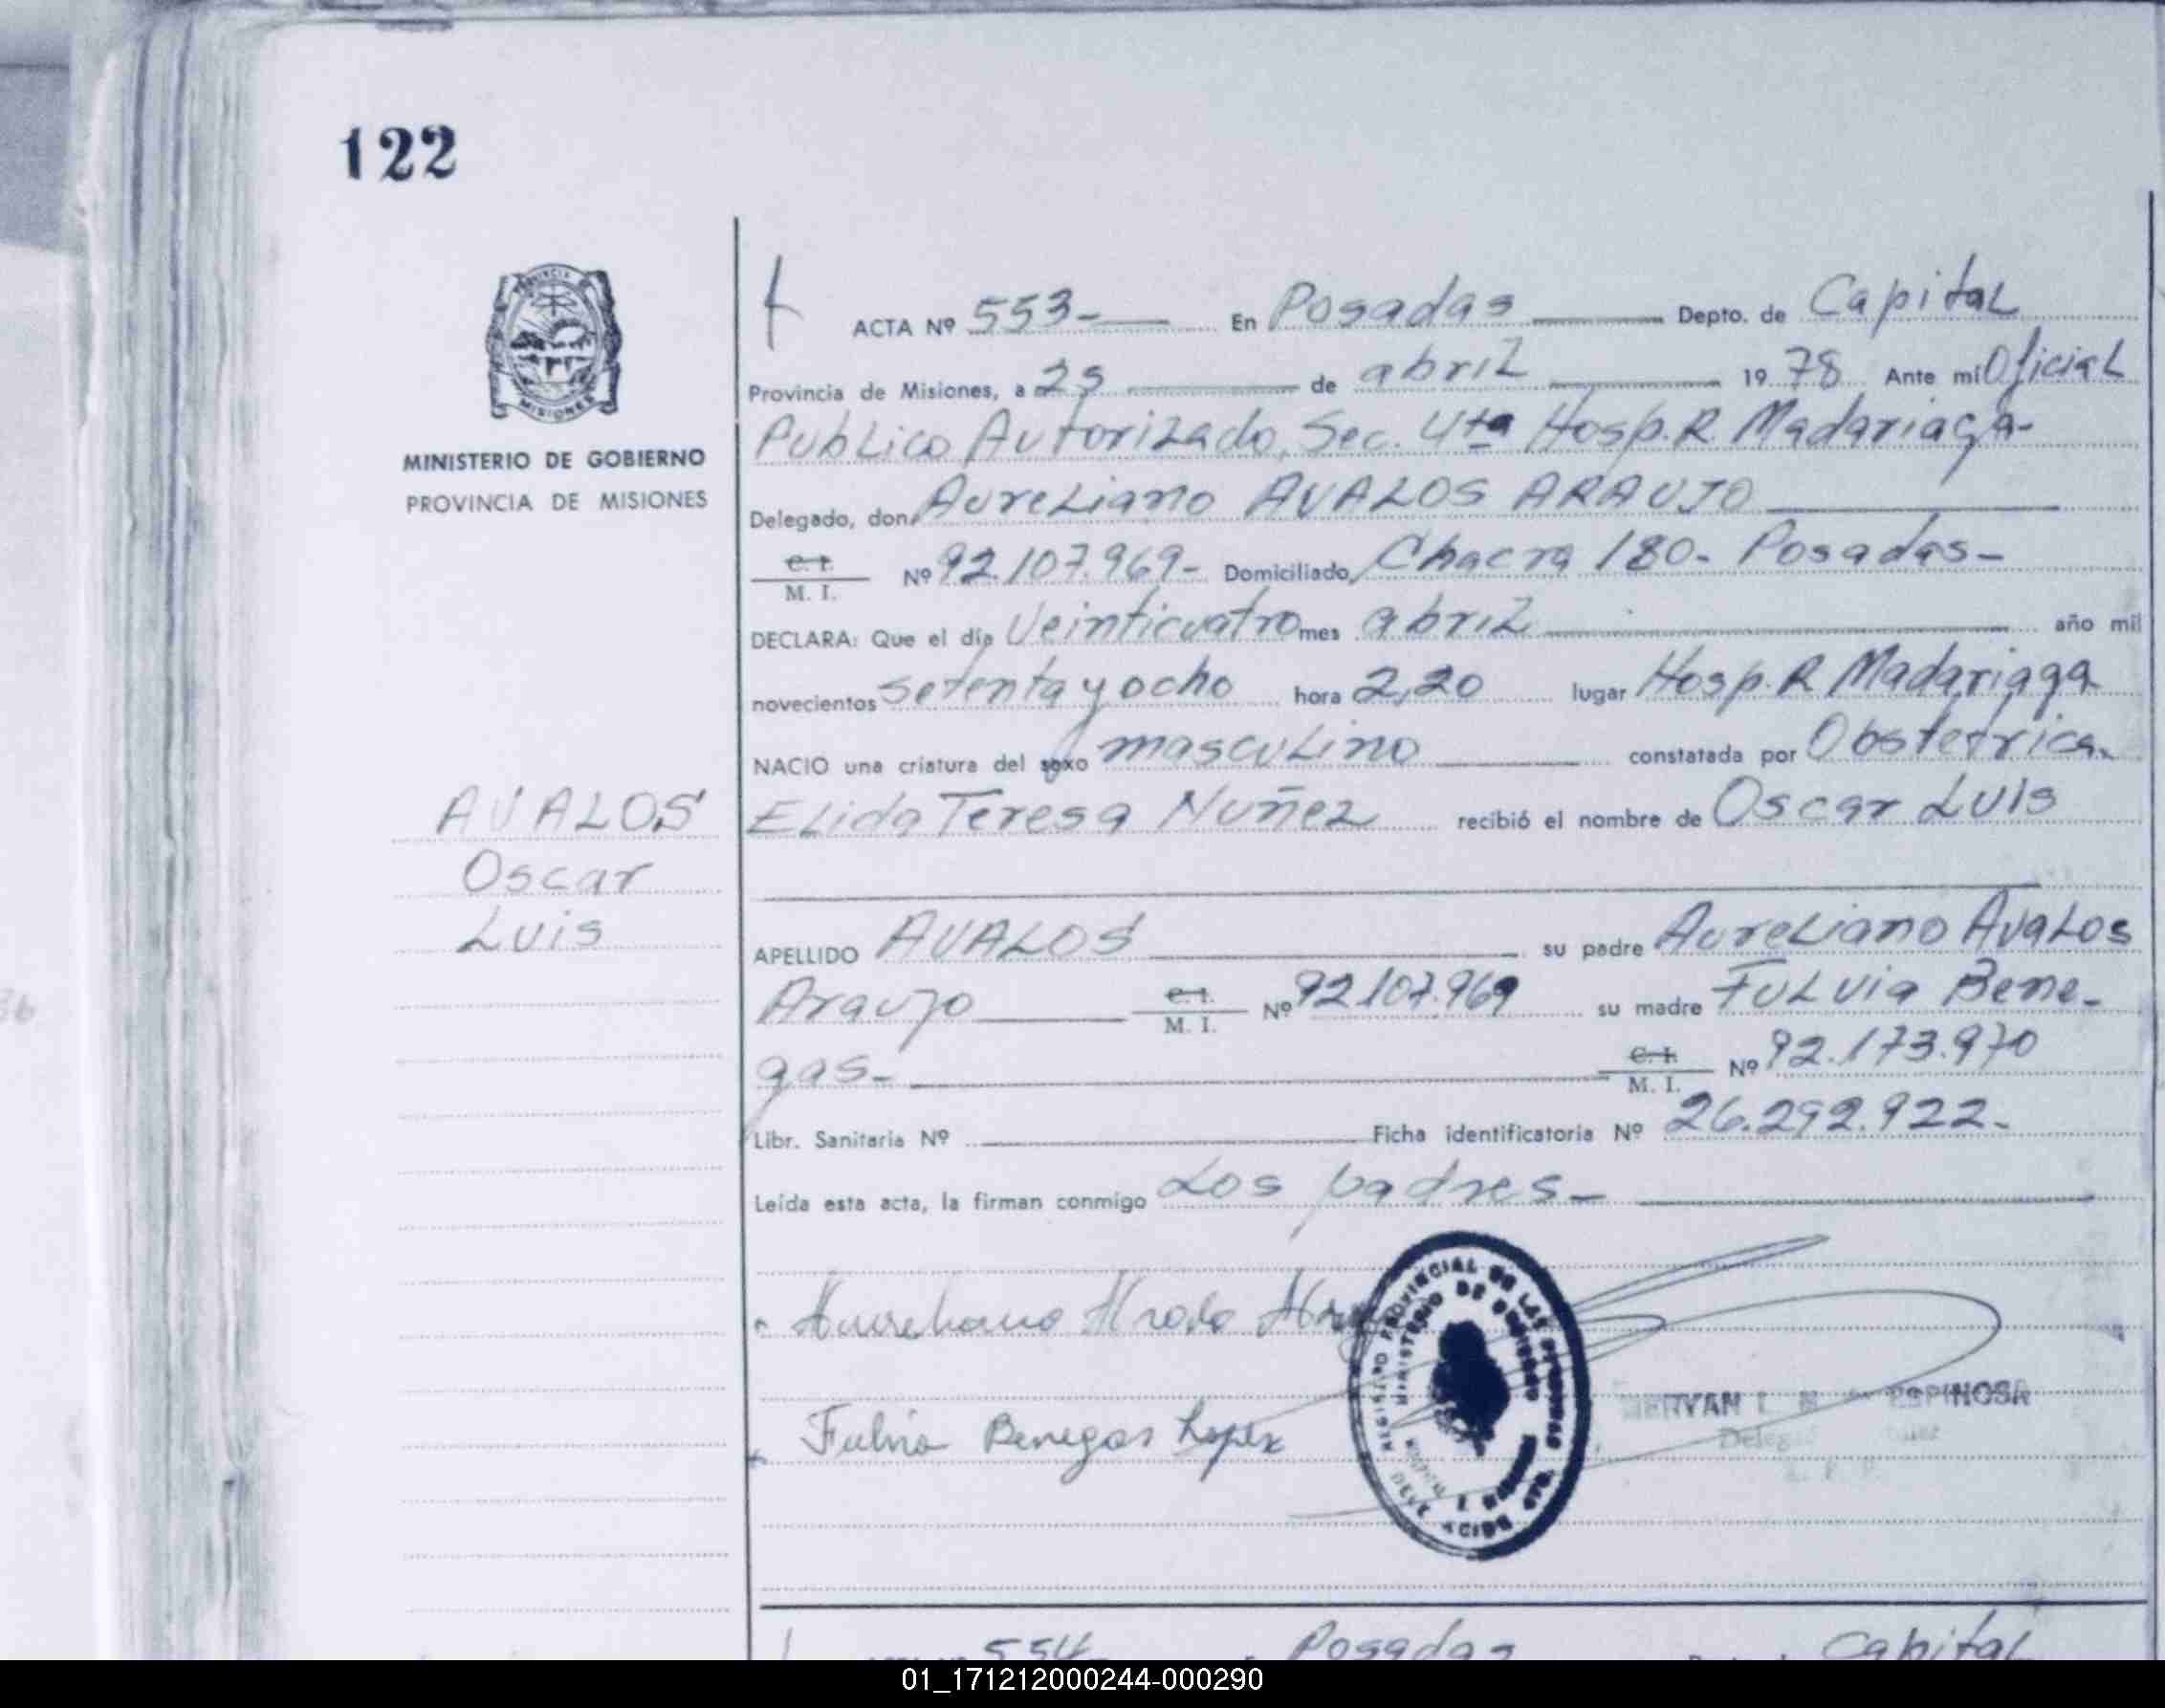 122
PROVINCIA
MISIONES
MINISTERIO DE GOBIERNO
PROVINCIA DE MISIONES
ACTA Nº 553- En Posadas Depto. de Capital
Provincia de Misiones, a 25 de abril 1978 Ante mi Oficial
Publico Autorizado, Sec. 4ta Hosp. R. Madariaga-
Delegado, don Aureliano AVALOS ARAUJO
C. I.
M. I. Nº 92.107.969- Domiciliado Chacra 180- Posadas-
DECLARA: Que el día Veinticuatro mes abril año mil
novecientos setenta y ocho hora 2,20 lugar Hosp. R Madariaga
NACIO una criatura del sexo masculino constatada por Obstetrica
Elida Teresa Nuñez recibió el nombre de Oscar Luis
AVALOS
Oscar
Luis
APELLIDO AVALOS su padre Aureliano Avalos
Araujo C. I. M. I. Nº 92.107.969 su madre Fulvia Bene-
gas- C. I. M. I. Nº 92.173.970
Libr. Sanitaria Nº Ficha identificatoria Nº 26.292.922-
Leída esta acta, la firman conmigo Los padres-
Fulvia Benegas Lopez
ESPINOSA
554 Posadas Capital
01_171212000244-000290